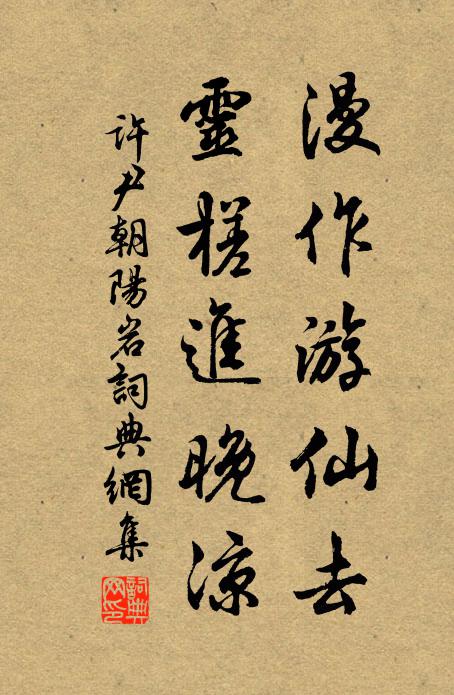 漫作游仙去
靈槎進晚涼
許尹朝陽岩詞典網集
詞典網印